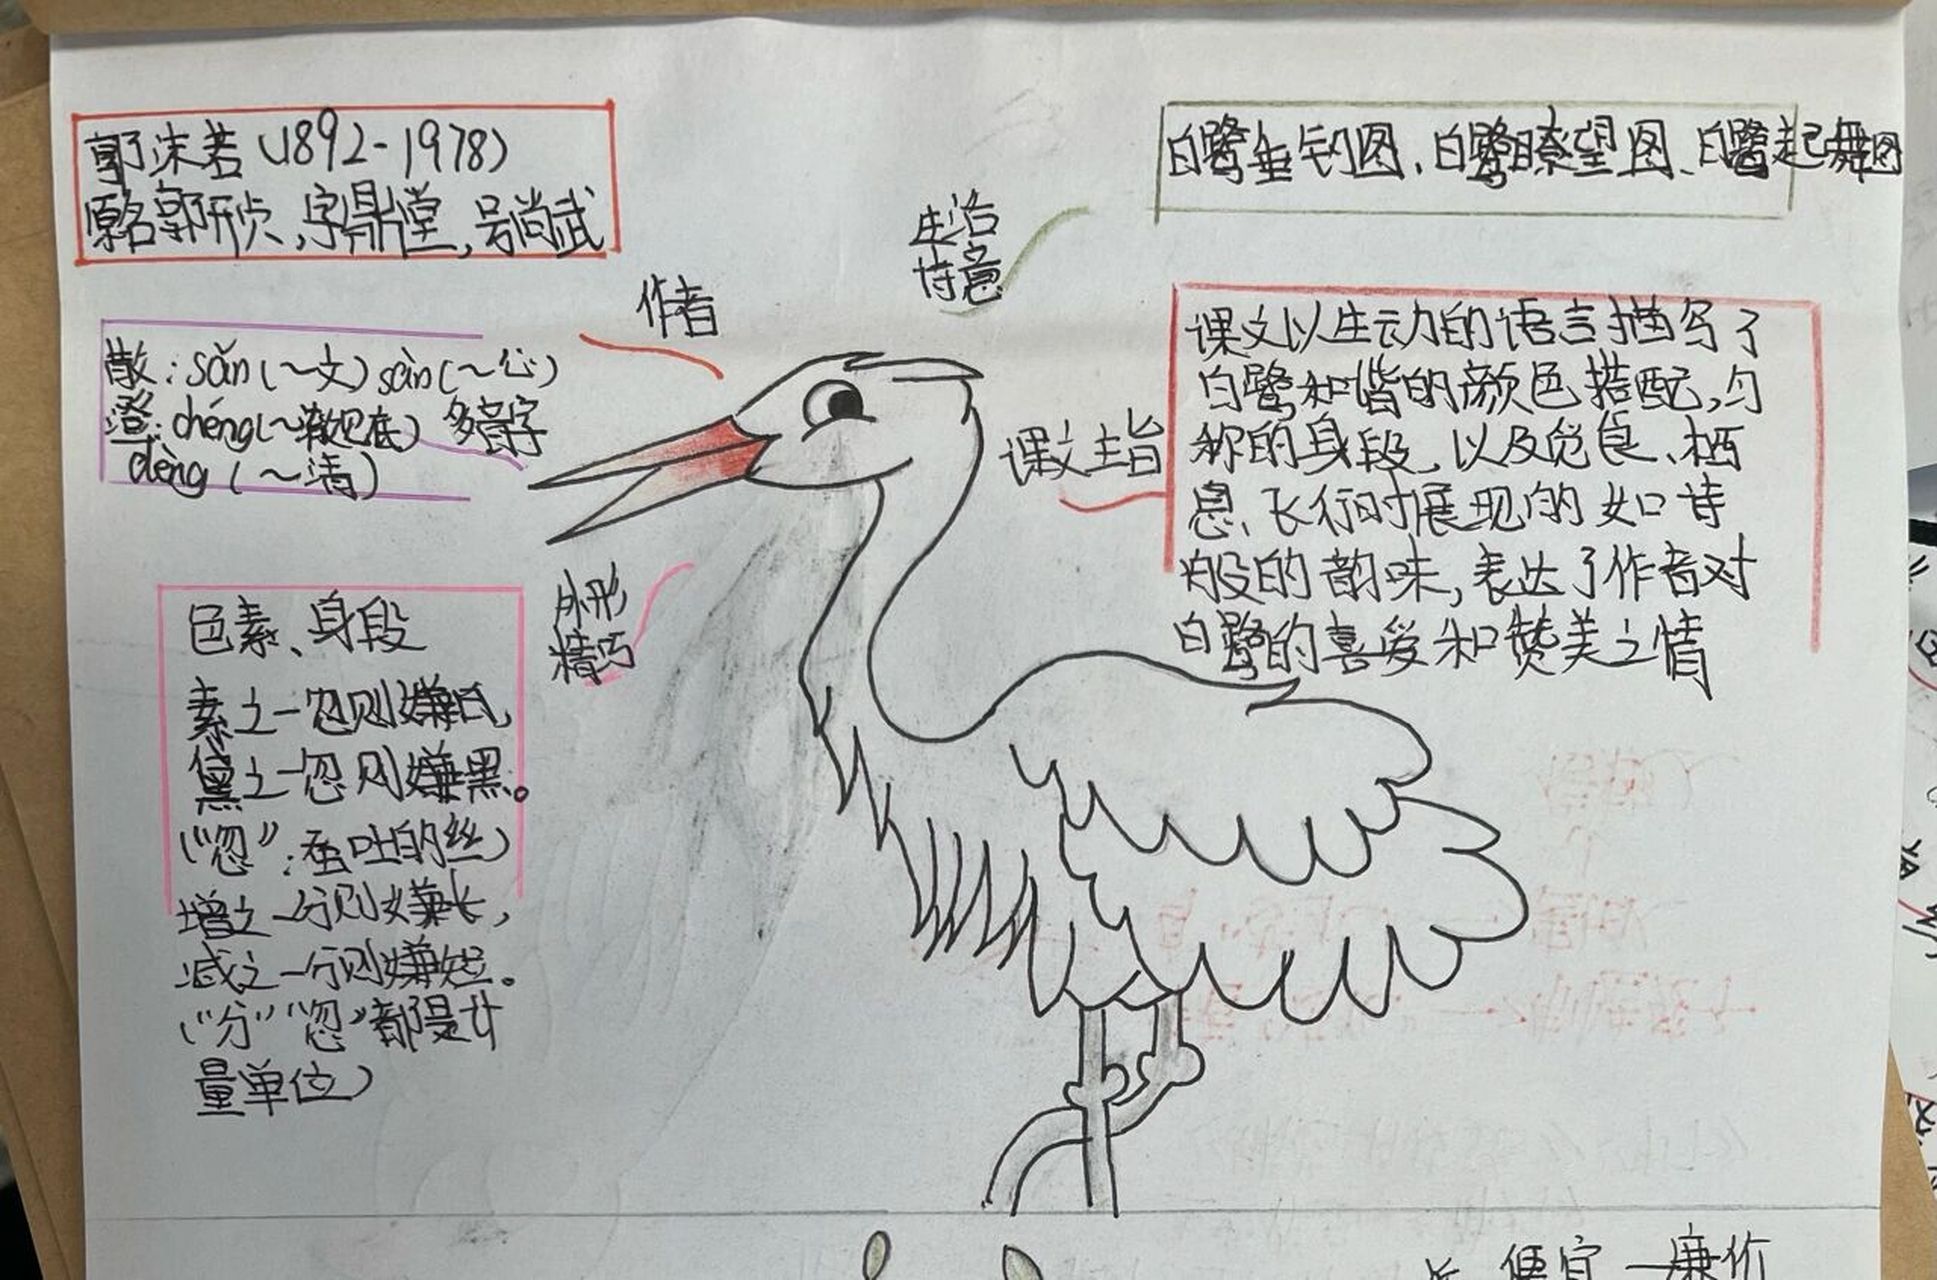 郭沫若(1892-1978)
原名郭开贞,字鼎堂,号尚武
作者
散:sǎn(～文) sàn(～心)
澄:chéng(～澈见底) 多音字
dèng(～清)
外形
精巧
色素、身段
素之一忽则嫌白,
黛之一忽则嫌黑。
(“忽”:蚕吐的丝)
增之一分则嫌长,
减之一分则嫌短。
(“分”“忽”都是计
量单位)
生活
诗意
白鹭垂钓图、白鹭瞭望图、白鹭起舞图
课文主旨
课文以生动的语言描写了
白鹭和谐的颜色搭配,匀
称的身段,以及觅食、栖
息、飞行时展现的如诗
般的韵味,表达了作者对
白鹭的喜爱和赞美之情
便宜—廉价